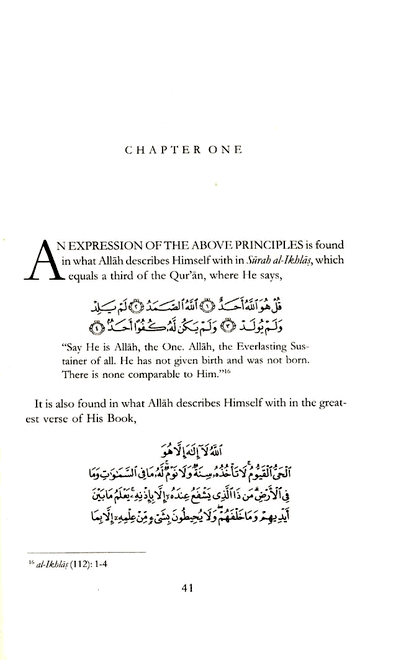 CHAPTER ONE
AN EXPRESSION OF THE ABOVE PRINCIPLES is found
in what Allāh describes Himself with in Sūrah al-Ikhlāṣ, which
equals a third of the Qur'ān, where He says,
قُلْ هُوَ ٱللَّهُ أَحَدٌ ﴿١﴾ ٱللَّهُ ٱلصَّمَدُ ﴿٢﴾ لَمْ يَلِدْ
وَلَمْ يُولَدْ ﴿٣﴾ وَلَمْ يَكُن لَّهُۥ كُفُوًا أَحَدٌۢ ﴿٤﴾
“Say He is Allāh, the One. Allāh, the Everlasting Sus-
tainer of all. He has not given birth and was not born.
There is none comparable to Him.”16
It is also found in what Allāh describes Himself with in the great-
est verse of His Book,
ٱللَّهُ لَآ إِلَٰهَ إِلَّا هُوَ
ٱلْحَىُّ ٱلْقَيُّومُ ۚ لَا تَأْخُذُهُۥ سِنَةٌ وَلَا نَوْمٌ ۚ لَّهُۥ مَا فِى ٱلسَّمَٰوَٰتِ وَمَا
فِى ٱلْأَرْضِ ۗ مَن ذَا ٱلَّذِى يَشْفَعُ عِندَهُۥٓ إِلَّا بِإِذْنِهِۦ ۚ يَعْلَمُ مَا بَيْنَ
أَيْدِيهِمْ وَمَا خَلْفَهُمْ ۖ وَلَا يُحِيطُونَ بِشَىْءٍ مِّنْ عِلْمِهِۦٓ إِلَّا بِمَا
16 al-Ikhlāṣ (112): 1-4
41